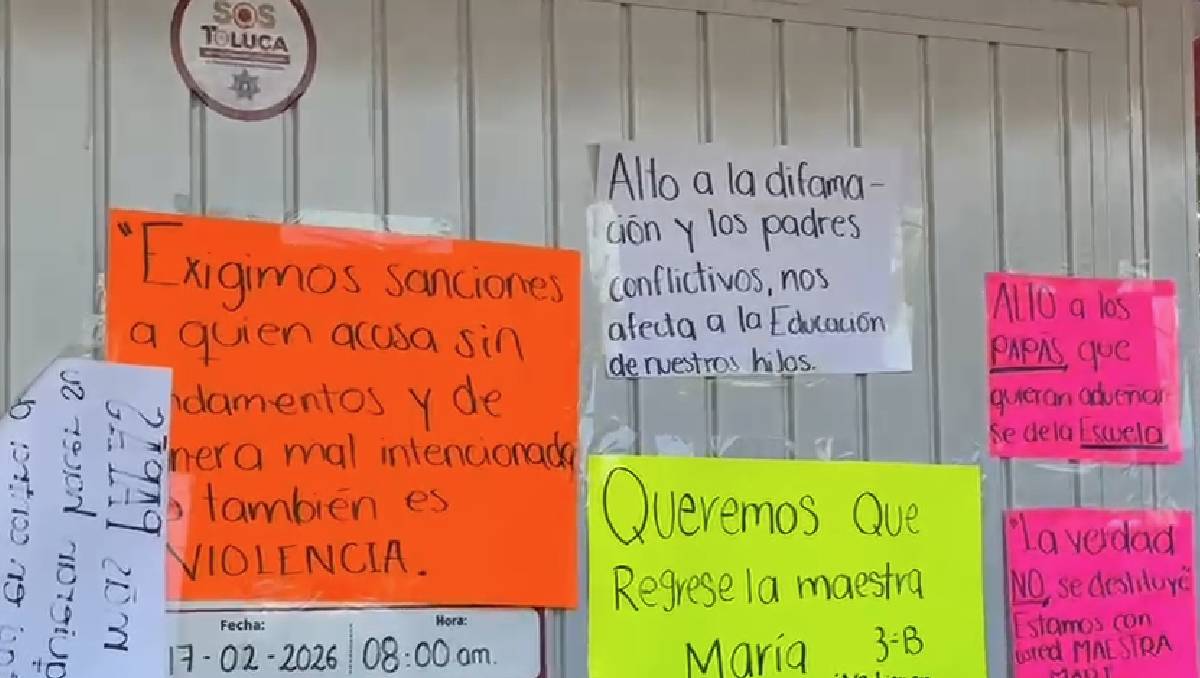 SOS
TOLUCA
"Exigimos sanciones
a quien acusa sin
ndamentos y de
nera mal intencionada
también es
VIOLENCIA.
Alto a la difama-
ción y los padres
conflictivos, nos
afecta a la Educación
de nuestros hijos.
ALTO a los
PAPÁS, que
quieran adueñar
se de la Escuela
Queremos Que
Regrese la maestra
María 3-B
"La verdad
NO, se destituye"
Estamos con
usted MAESTRA
Fecha:
Hora:
17-02-2026
08:00 am.